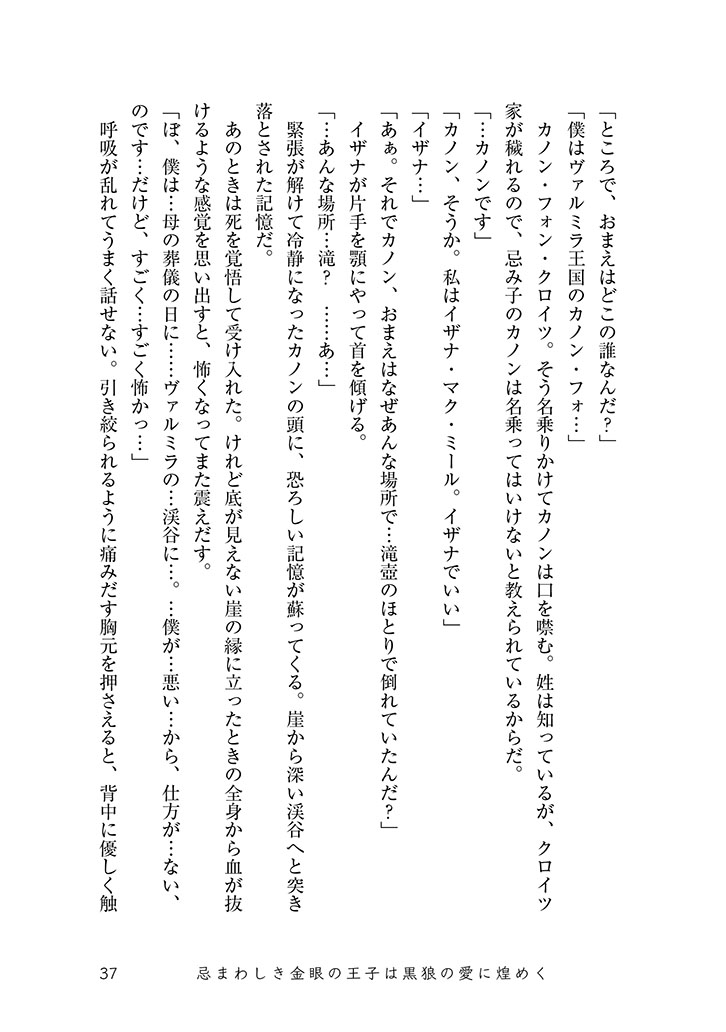 「ところで、おまえはどこの誰なんだ？」
「僕はヴァルミラ王国のカノン・フォ…」
　カノン・フォン・クロイツ。そう名乗りかけてカノンは口を噤む。姓は知っているが、クロイツ
家が穢れるので、忌み子のカノンは名乗ってはいけないと教えられているからだ。
「…カノンです」
「カノン、そうか。私はイザナ・マク・ミール。イザナでいい」
「イザナ…」
「あぁ。それでカノン、おまえはなぜあんな場所で…滝壺のほとりで倒れていたんだ？」
　イザナが片手を顎にやって首を傾げる。
「…あんな場所…滝？　……あ…」
　緊張が解けて冷静になったカノンの頭に、恐ろしい記憶が蘇ってくる。崖から深い渓谷へと突き
落とされた記憶だ。
　あのときは死を覚悟して受け入れた。けれど底が見えない崖の縁に立ったときの全身から血が抜
けるような感覚を思い出すと、怖くなってまた震えだす。
「ぼ、僕は…母の葬儀の日に……ヴァルミラの…渓谷に…。…僕が…悪い…から、仕方が…ない、
のです…だけど、すごく…すごく怖かっ…」
　呼吸が乱れてうまく話せない。引き絞られるように痛みだす胸元を押さえると、背中に優しく触
37
忌まわしき金眼の王子は黒狼の愛に煌めく